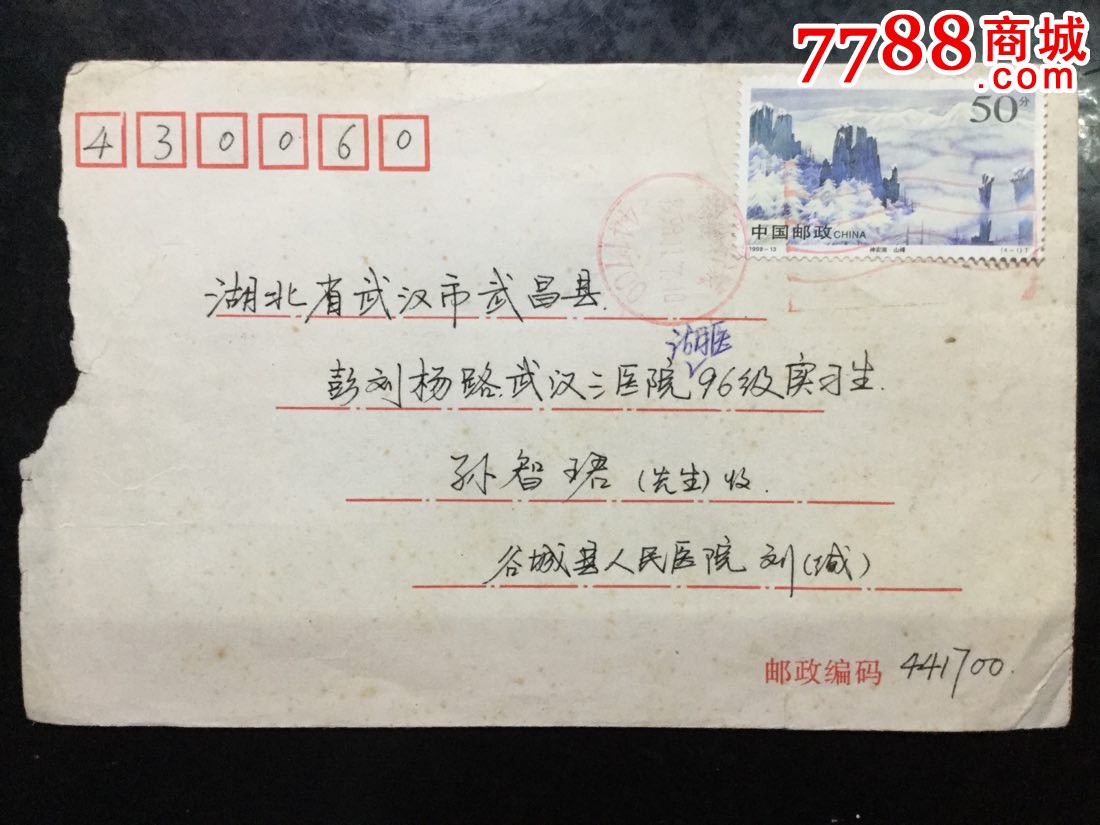 7788商城
.com
430060
50分
中国邮政CHINA
1998-13 神农架·山峰 (4-1)T
湖北省武汉市武昌县.
湖医
彭刘杨路.武汉三医院96级实习生.
孙智珺(先生)收.
谷城县人民医院刘(缄)
邮政编码 441700.